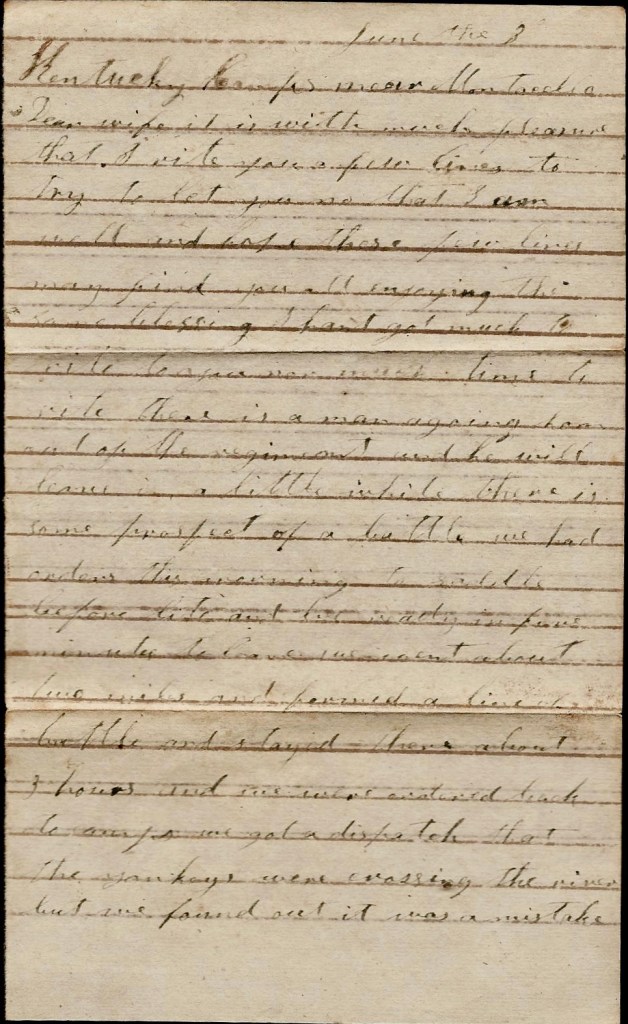 June the 3
Kentucky Camps near Monticelia
Dear wife it is with much pleasure
that I rite you a few lines to
try to let you no that I am
well and hope these few lines
may find you all enjoying the
same blessing I haint got much to
rite to you nor much time to
rite there is a man agoing hom
out of the regiment and he will
leave in a little while there is
some prospect of a battle we had
orders this morning to saddle
before lite and be ready in five
minutes to leave we went about
two miles and formed a line of
battle and stayed there about
3 hours and we were ordered back
to camps we got a dispatch that
the yankeys were crossing the river
but we found out it was a mistake